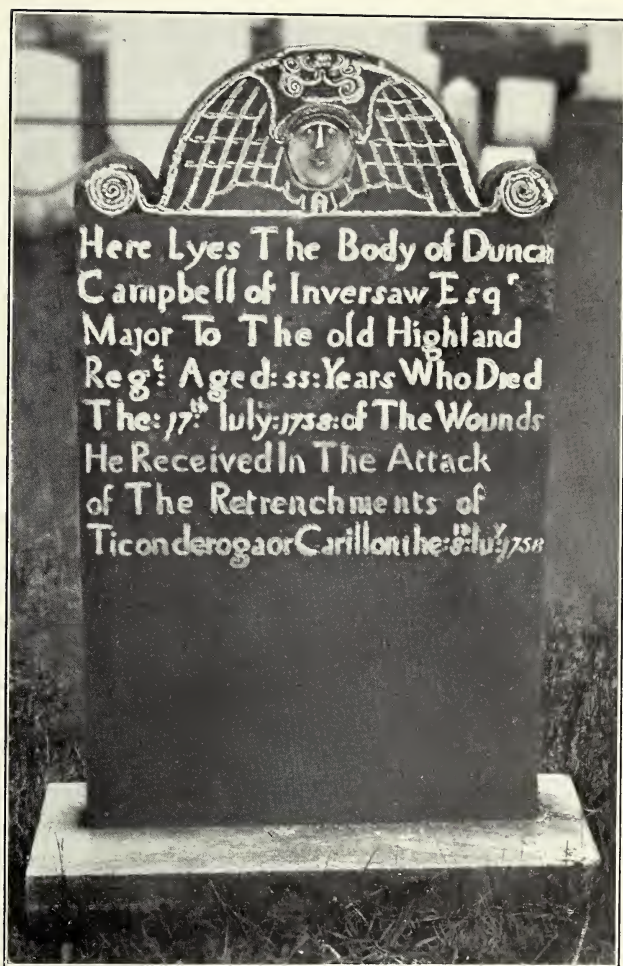 Here Lyes The Body of Duncan
Campbell of Inversaw Esqr
Major To The old Highland
Regt: Aged: 55: Years Who Died
The: 17th: Iuly: 1758: of The Wounds
He Received In The Attack
of The Retrenchments of
Ticonderoga or Carillon the: 8th: Iuy: 1758